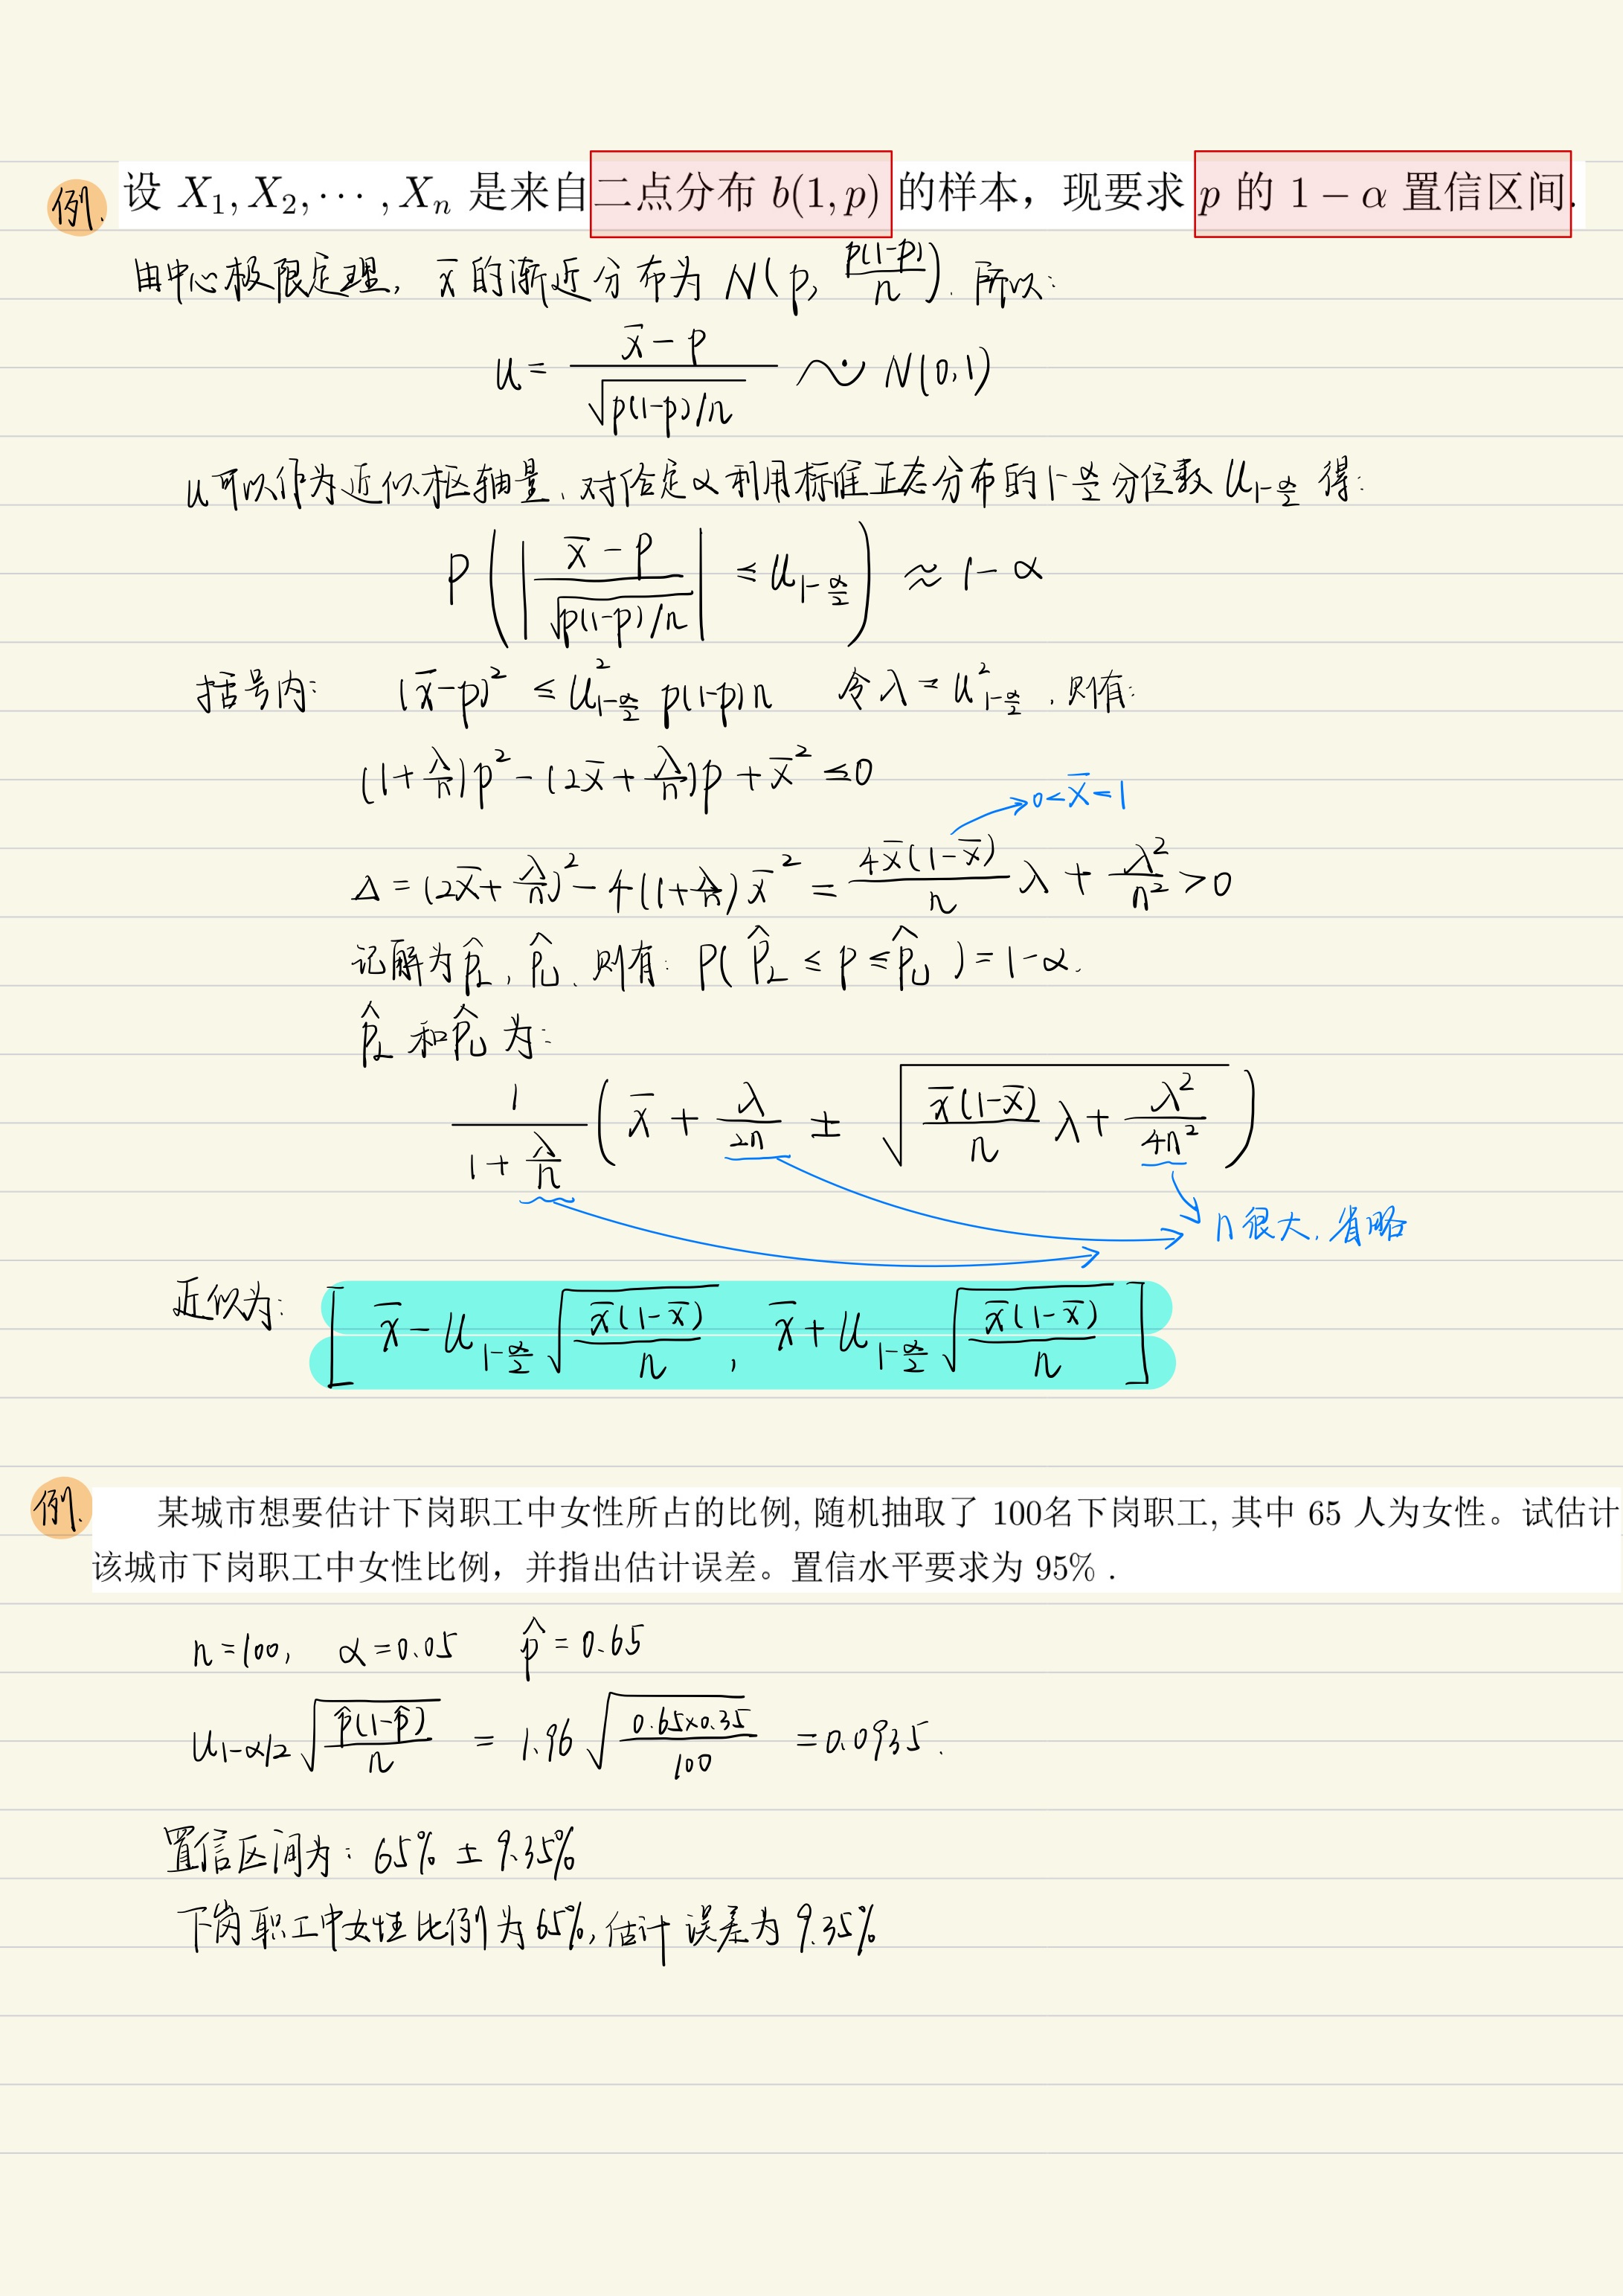 例. 设 X₁, X₂, ⋯ , Xₙ 是来自二点分布 b(1, p) 的样本，现要求 p 的 1 − α 置信区间.
由中心极限定理, x̄ 的渐近分布为 N(p, p(1-p)/n). 所以:
u = (x̄ - p) / √(p(1-p)/n) ∼̇ N(0,1)
u可以作为近似枢轴量、对给定α利用标准正态分布的1-α/2分位数 U_{1-α/2} 得:
P( | (x̄ - p) / √(p(1-p)/n) | ≤ U_{1-α/2} ) ≈ 1 - α
括号内: (x̄-p)² ≤ U²_{1-α/2} p(1-p)n 令 λ = U²_{1-α/2}, 则有:
(1+λ/n)p² - (2x̄+λ/n)p + x̄² ≤0
0<x̄=1
Δ = (2x̄+λ/n)² - 4(1+λ/n) x̄² = 4x̄(1-x̄)/n λ + λ²/n² >0
记解为 p̂_L, p̂_U、则有: P( p̂_L ≤ p ≤ p̂_U ) = 1-α.
p̂_L 和 p̂_U 为:
1/(1+λ/n) ( x̄ + λ/2n ± √( x̄(1-x̄)/n λ + λ²/4n² ) )
n很大, 省略
近似为: [ x̄ - U_{1-α/2} √(x̄(1-x̄)/n) , x̄ + U_{1-α/2} √(x̄(1-x̄)/n) ]
例. 某城市想要估计下岗职工中女性所占的比例, 随机抽取了 100名下岗职工, 其中 65 人为女性。试估计
该城市下岗职工中女性比例，并指出估计误差。置信水平要求为 95% .
n=100, α=0.05 p̂=0.65
U_{1-α/2} √(p̂(1-p̂)/n) = 1.96 √(0.65×0.35/100) = 0.0935.
置信区间为: 65% ± 9.35%
下岗职工中女性比例为65%, 估计误差为 9.35%